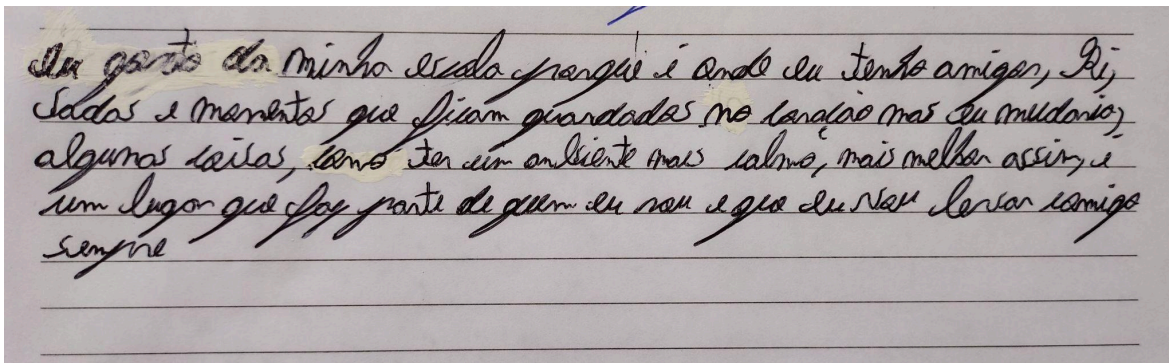 Eu gosto da minha escola porque é onde eu tenho amigos, Ri,
sadas e momentos que ficam guardados no coração mas eu mudaria,
algumas coisas, como ter um ambiente mais calmo, mais melhor assim, é
um lugar que faz parte de quem eu sou e que eu vou levar comigo
sempre